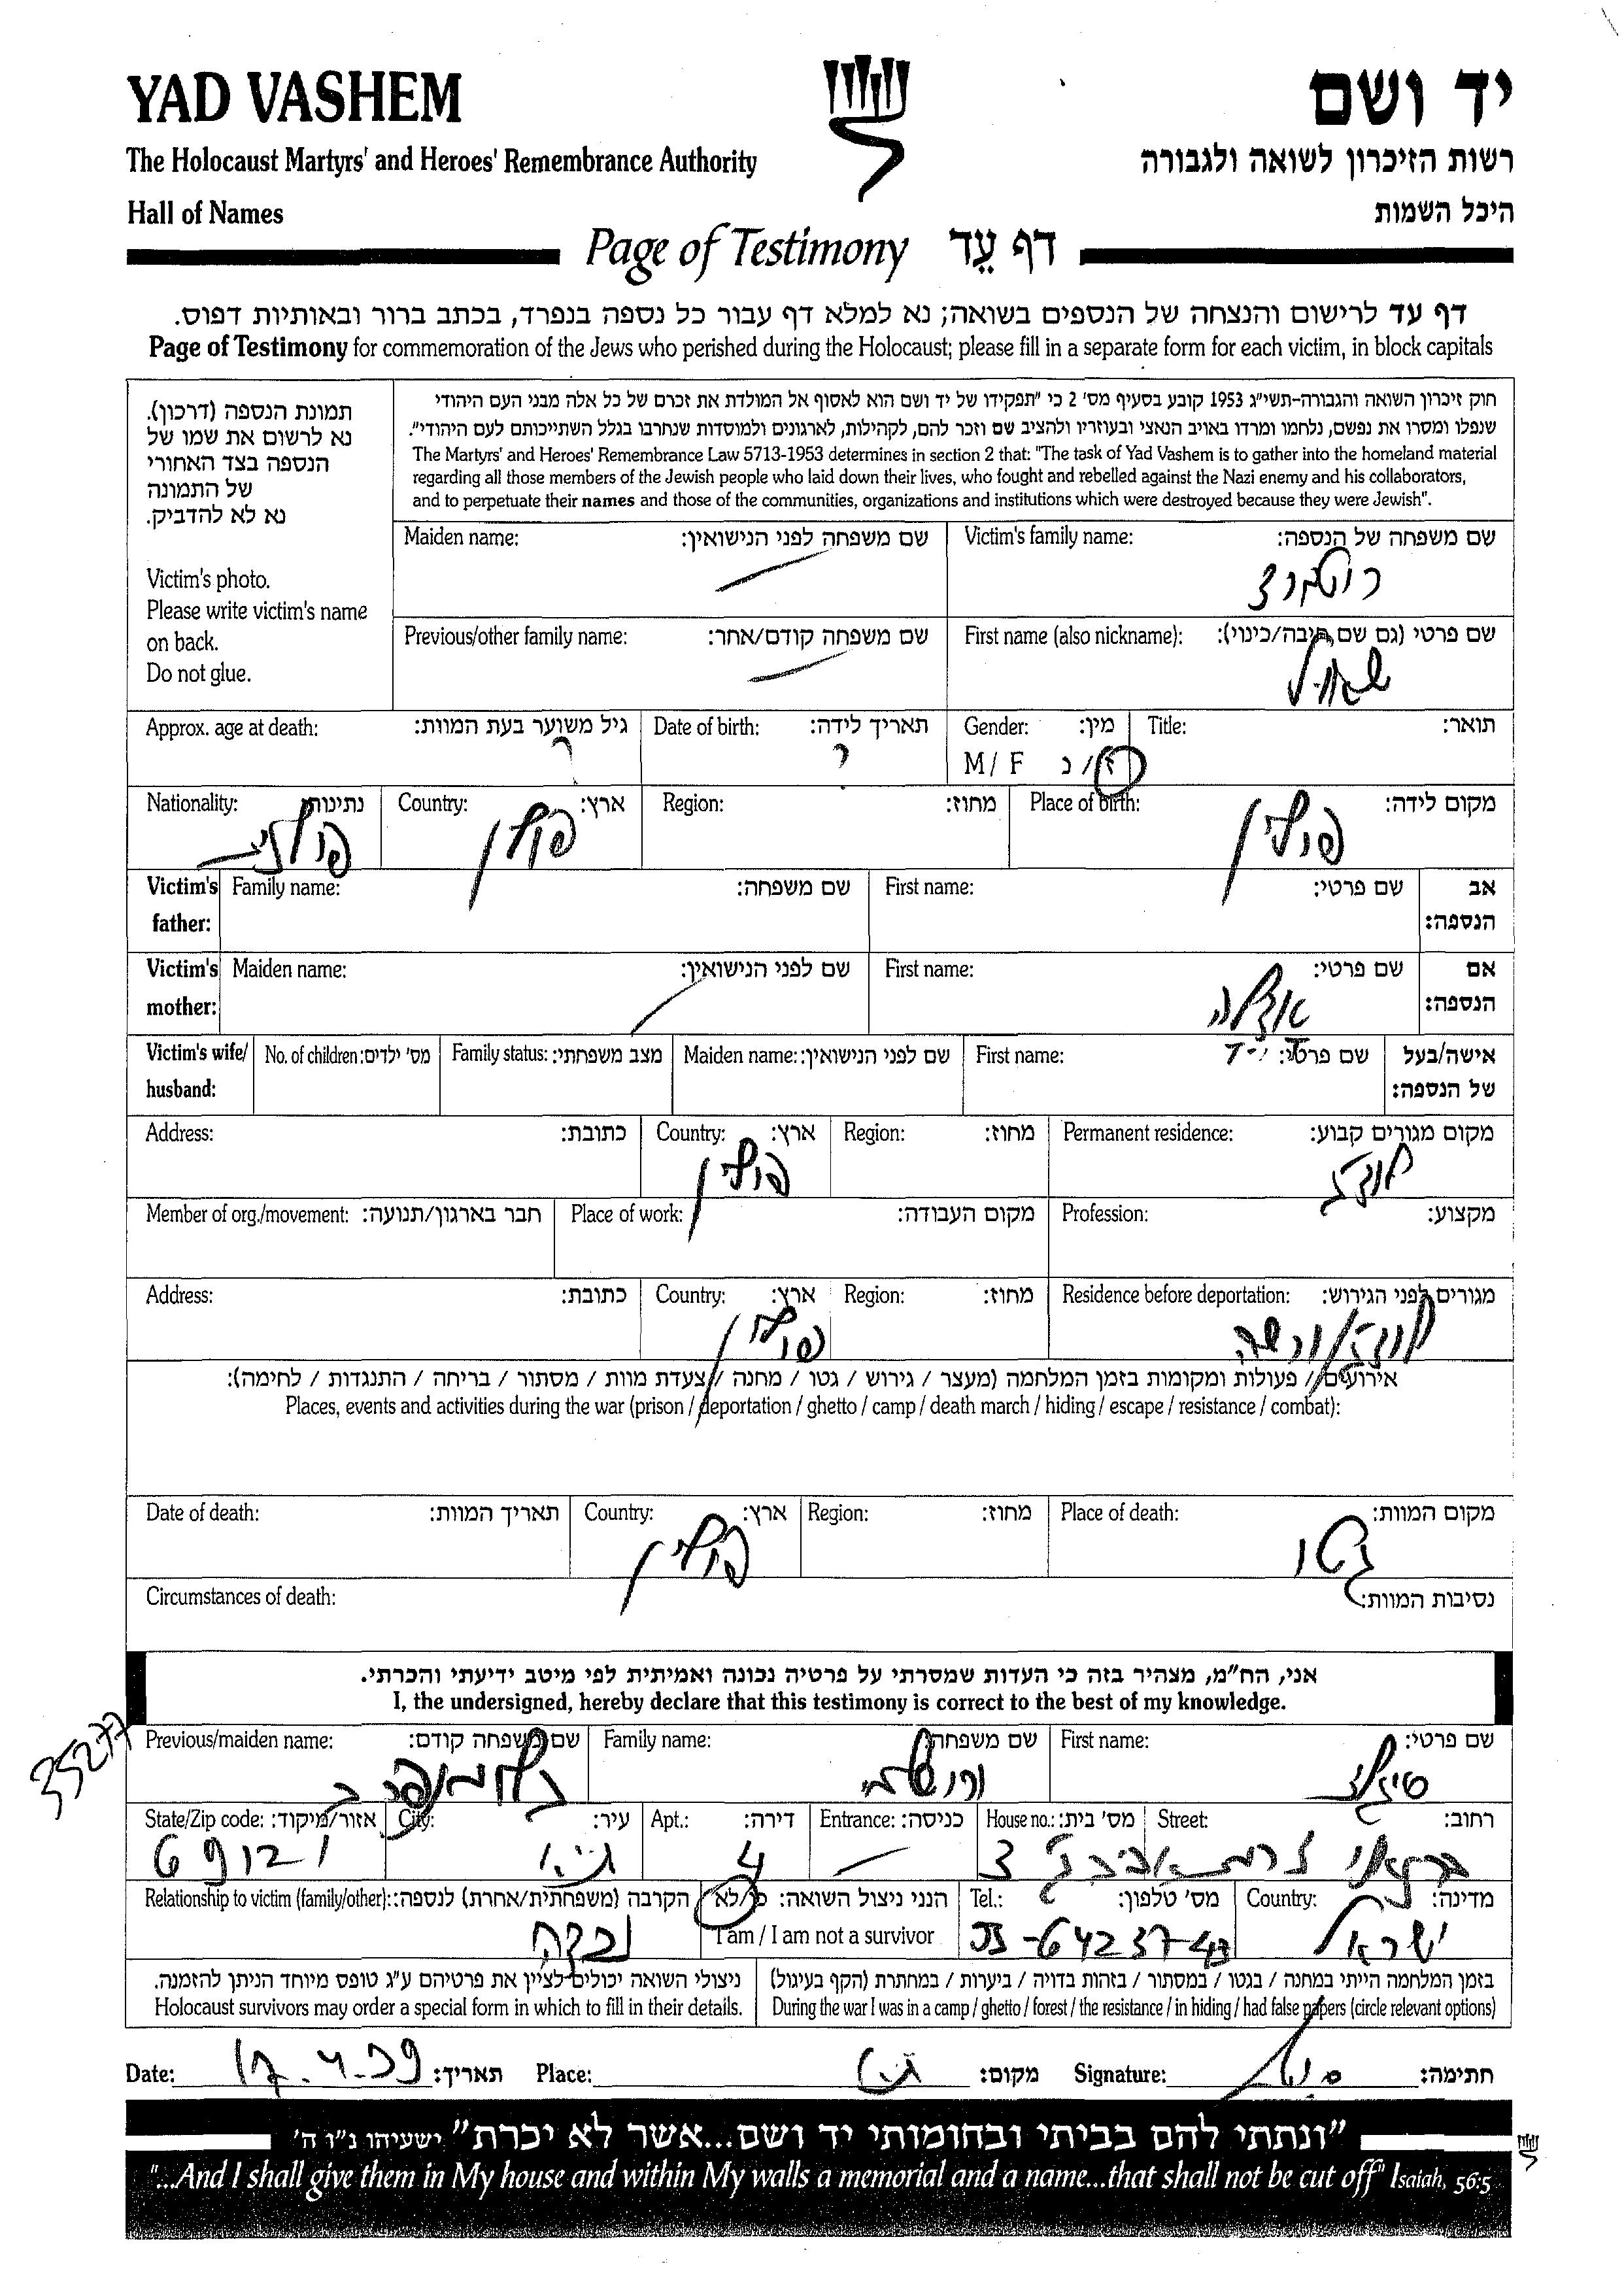 YAD VASHEM
יד ושם
The Holocaust Martyrs' and Heroes' Remembrance Authority
רשות הזיכרון לשואה ולגבורה
Hall of Names
היכל השמות
Page of Testimony דף עֵד
דף עד לרישום והנצחה של הנספים בשואה; נא למלא דף עבור כל נספה בנפרד, בכתב ברור ובאותיות דפוס.
Page of Testimony for commemoration of the Jews who perished during the Holocaust; please fill in a separate form for each victim, in block capitals
תמונת הנספה (דרכון).
נא לרשום את שמו של
הנספה בצד האחורי
של התמונה
נא לא להדביק.
Victim's photo.
Please write victim's name
on back.
Do not glue.
חוק זיכרון השואה והגבורה-תשי"ג 1953 קובע בסעיף מס' 2 כי "תפקידו של יד ושם הוא לאסוף אל המולדת את זכרם של כל אלה מבני העם היהודי
שנפלו ומסרו את נפשם, נלחמו ומרדו באויב הנאצי ובעוזריו ולהציב שם וזכר להם, לקהילות, לארגונים ולמוסדות שנחרבו בגלל השתייכותם לעם היהודי".
The Martyrs' and Heroes' Remembrance Law 5713-1953 determines in section 2 that: "The task of Yad Vashem is to gather into the homeland material
regarding all those members of the Jewish people who laid down their lives, who fought and rebelled against the Nazi enemy and his collaborators,
and to perpetuate their names and those of the communities, organizations and institutions which were destroyed because they were Jewish".
Maiden name: שם משפחה לפני הנישואין:
Victim's family name: שם משפחה של הנספה:
Previous/other family name: שם משפחה קודם/אחר:
First name (also nickname): שם פרטי (גם שם חיבה/כינוי):
Approx. age at death: גיל משוער בעת המוות: ?
Date of birth: תאריך לידה: ?
Gender: מין: M / F ז / נ
Title: תואר:
Nationality: נתינות:
Country: ארץ: פולין
Region: מחוז:
Place of birth: מקום לידה: פולין
Victim's father: Family name: שם משפחה: First name: שם פרטי: אב הנספה:
Victim's mother: Maiden name: שם לפני הנישואין: First name: שם פרטי: אם הנספה:
Victim's wife/ husband: No. of children: מס' ילדים: Family status: מצב משפחתי: Maiden name: שם לפני הנישואין: First name: שם פרטי: אישה/בעל של הנספה:
Address: כתובת: Country: ארץ: פולין Region: מחוז: Permanent residence: מקום מגורים קבוע: לודז'
Member of org./movement: חבר בארגון/תנועה: Place of work: מקום העבודה: Profession: מקצוע:
Address: כתובת: Country: ארץ: פולין Region: מחוז: Residence before deportation: מגורים לפני הגירוש: לודז' / ורשה
אירועים / פעולות ומקומות בזמן המלחמה (מעצר / גירוש / גטו / מחנה / צעדת מוות / מסתור / בריחה / התנגדות / לחימה):
Places, events and activities during the war (prison / deportation / ghetto / camp / death march / hiding / escape / resistance / combat):
Date of death: תאריך המוות: Country: ארץ: פולין Region: מחוז: Place of death: מקום המוות: גטו
Circumstances of death: נסיבות המוות:
אני, הח"מ, מצהיר בזה כי העדות שמסרתי על פרטיה נכונה ואמיתית לפי מיטב ידיעתי והכרתי.
I, the undersigned, hereby declare that this testimony is correct to the best of my knowledge.
35277
Previous/maiden name: שם משפחה קודם:
Family name: שם משפחה:
First name: שם פרטי:
State/Zip code: אזור/מיקוד: City: עיר: ת"א Apt.: דירה: 4 Entrance: כניסה: House no.: מס' בית: 3 Street: רחוב:
Relationship to victim (family/other): הקרבה (משפחתית/אחרת) לנספה: נכדה
הנני ניצול השואה: כן/לא
I am / I am not a survivor
Tel.: מס' טלפון:
Country: מדינה: ישראל
ניצולי השואה יכולים לציין את פרטיהם ע"ג טופס מיוחד הניתן להזמנה.
Holocaust survivors may order a special form in which to fill in their details.
בזמן המלחמה הייתי במחנה / בגטו / במסתור / בזהות בדויה / ביערות / במחתרת (הקף בעיגול)
During the war I was in a camp / ghetto / forest / the resistance / in hiding / had false papers (circle relevant options)
Date: תאריך: Place: ת"א מקום: Signature: חתימה:
"ונתתי להם בביתי ובחומותי יד ושם...אשר לא יכרת" ישעיהו נ"ו ה'
"...And I shall give them in My house and within My walls a memorial and a name...that shall not be cut off" Isaiah, 56:5